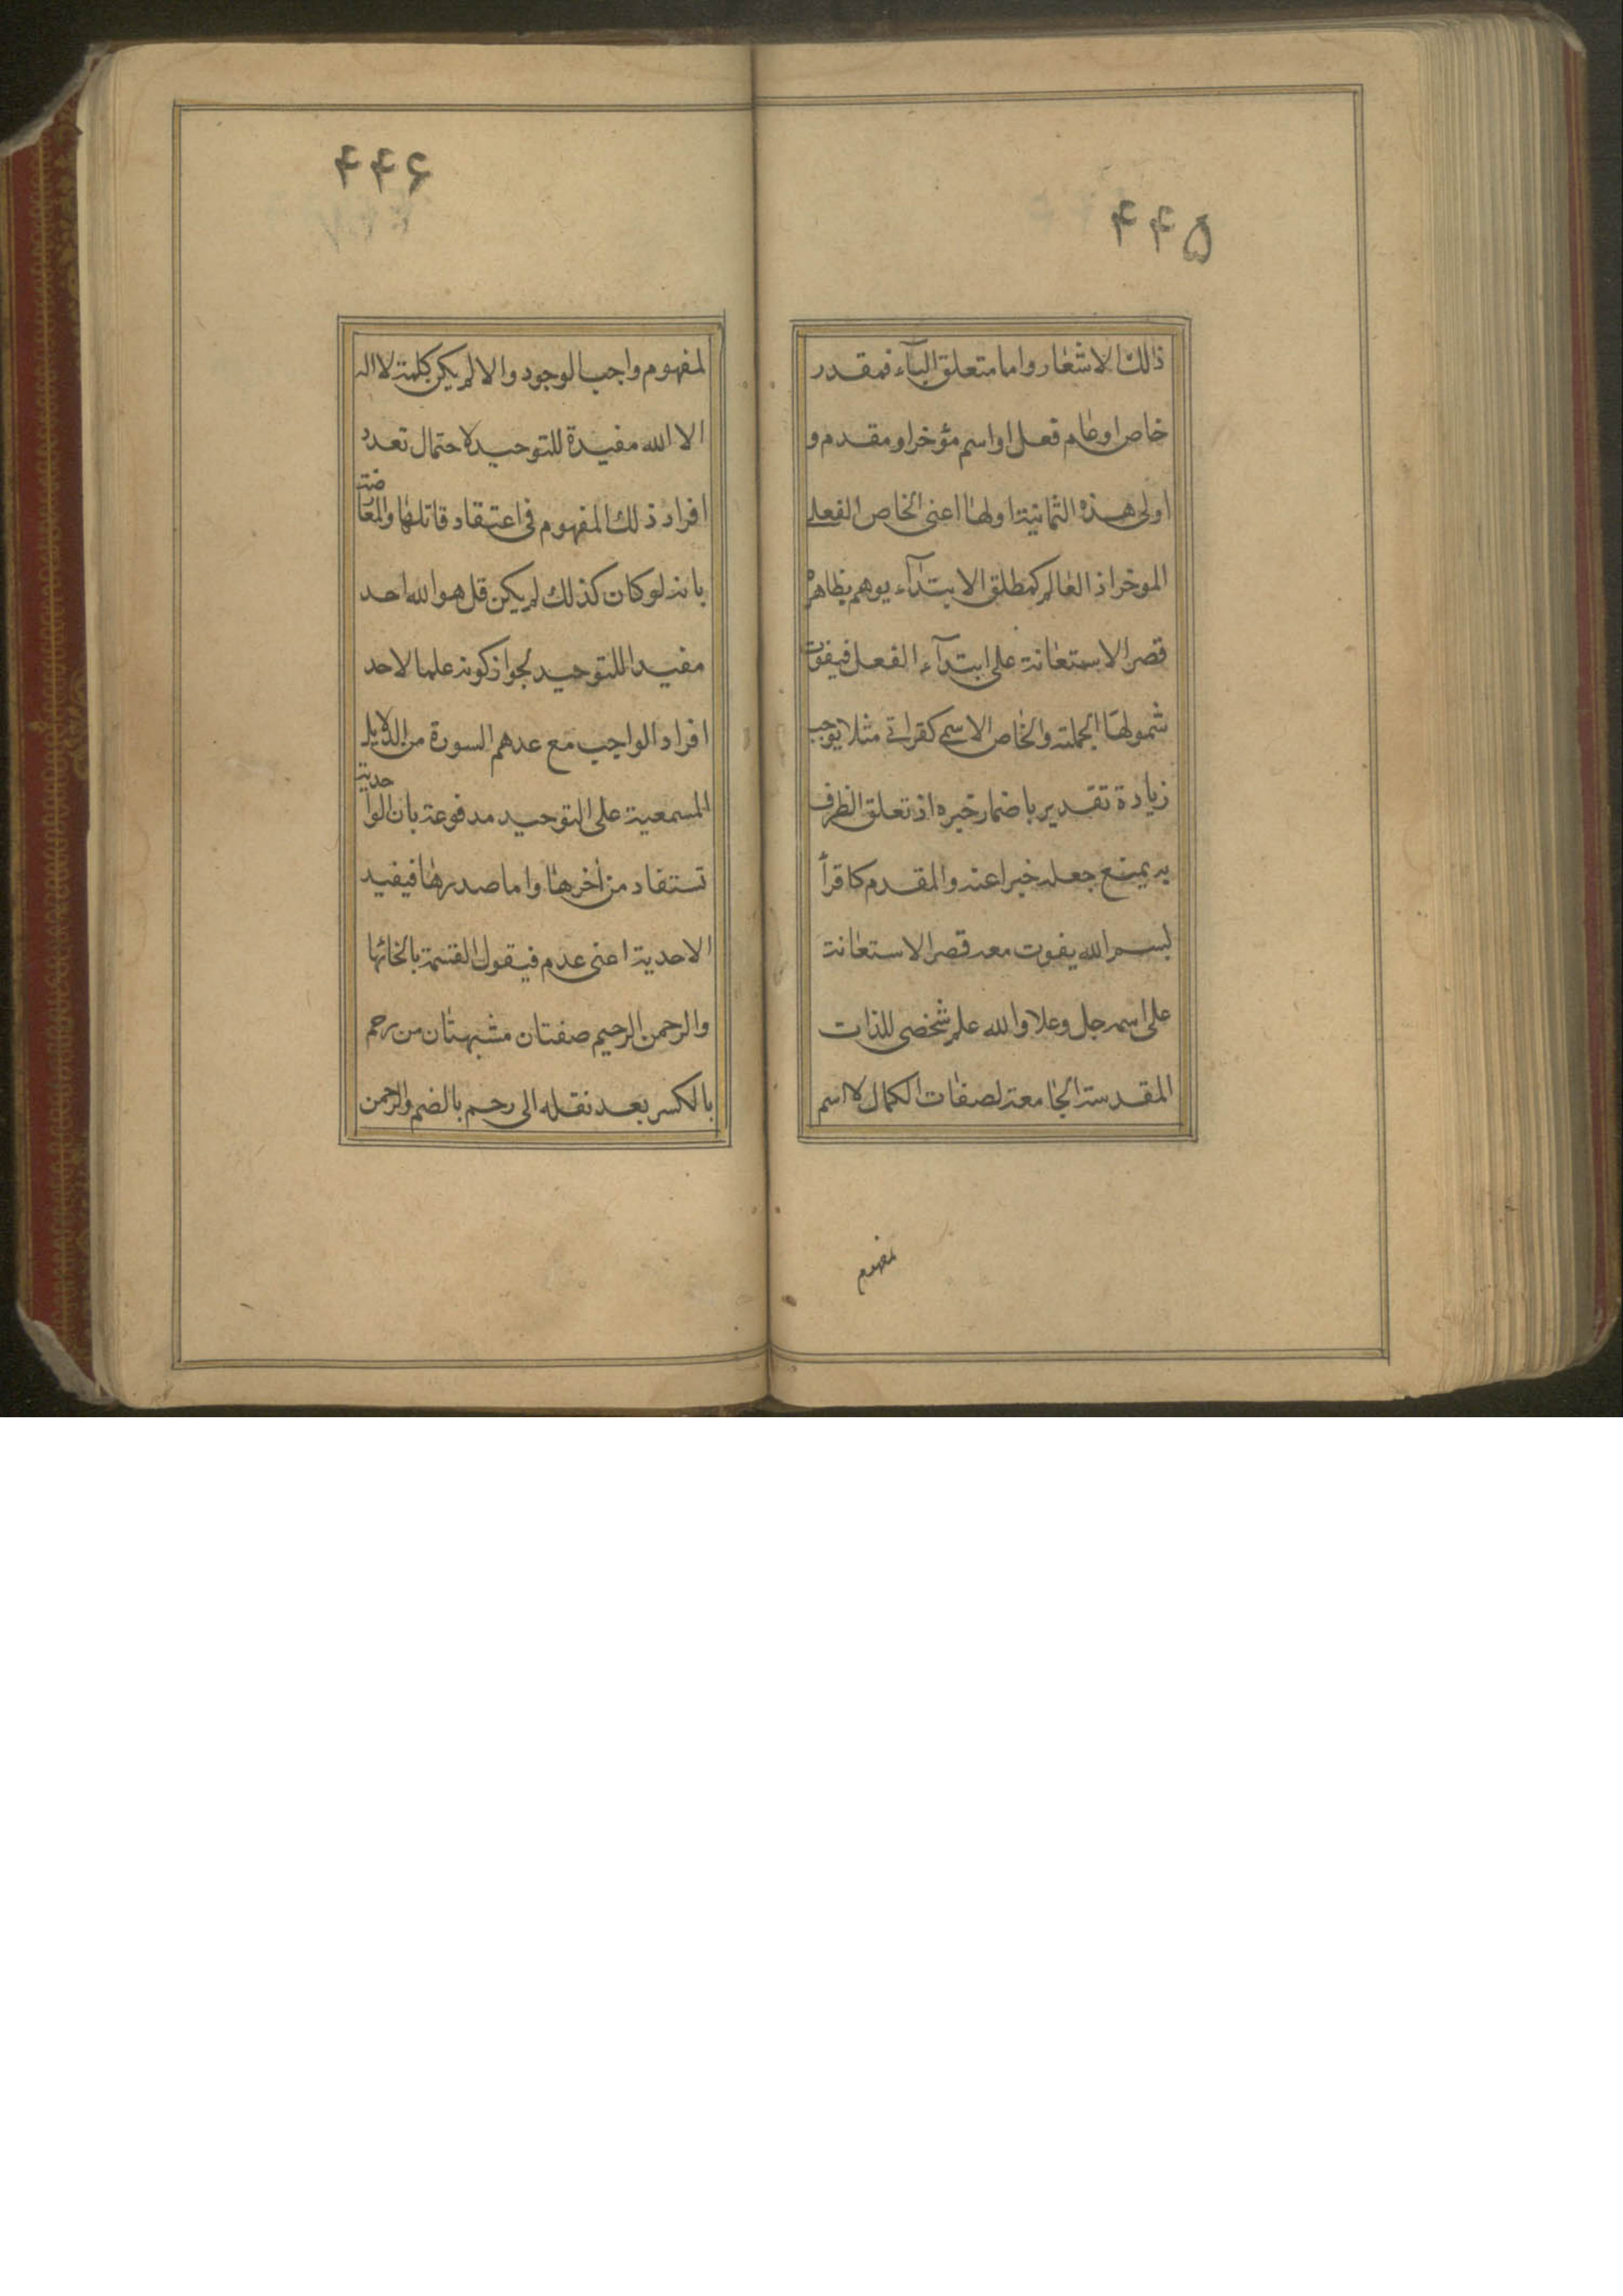 ۴۴۵
ذالك الاشعار واما متعلق البآء فمقدر
خاص او عام فعل او اسم مؤخر او مقدم و
اولى هذه الثمانية اولها اعنى الخاص الفعلى
الموخر اذ العام كمطلق الابتدآء يوهم بظاهره
قصر الاستعانة على ابتدآء الفعل فيفوت
شمولها الجملته والخاص الاسمى كقرائتى مثلا يوجب
زيادة تقدير باضمار خبره اذ تعلق الظرف
به يمنع جعله خبرا عنه والمقدم كاقرأ
بسم الله يفوت معه قصر الاستعانة
على اسمه جل وعلا والله علم شخصى للذات
المقدسة الجامعة لصفات الكمال لا اسم
مفهوم
۴۴۶
لمفهوم واجب الوجود والا لم يكن كلمة لا اله
الا الله مفيدة للتوحيد لاحتمال تعدد
افراد ذلك المفهوم فى اعتقاد قائلها والمعارضة
بانه لو كان كذلك لم يكن قل هو الله احد
مفيدا للتوحيد لجواز كونه علما لاحد
افراد الواجب مع عدهم السورة من الدلايل
السمعية على التوحيد مدفوعة بان الواحدية
تستفاد من اخرها واما صدرها فيفيد
الاحدية اعنى عدم فيقول القسمة بانحائها
والرحمن الرحيم صفتان مشبهتان من رحم
بالكسر بعد نقله الى رحم بالضم والرحمن